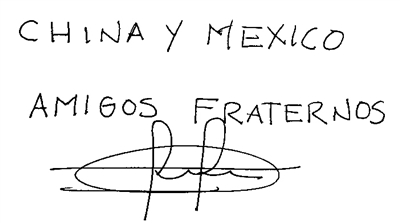 CHINA Y MEXICO
AMIGOS FRATERNOS